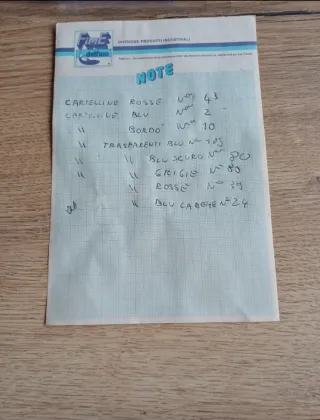 DIVISIONE PRODOTTI INDUSTRIALI
NOTE
CARTELLINE ROSSE N° 43
CARTELLINE BLU N° 2
" BORDO' N° 10
" TRASPARENTI BLU N°
" " BLU SCURO N° 80
" " GRIGIE N°
" " ROSSE N° 39
" " BLU LARGHE N° 24